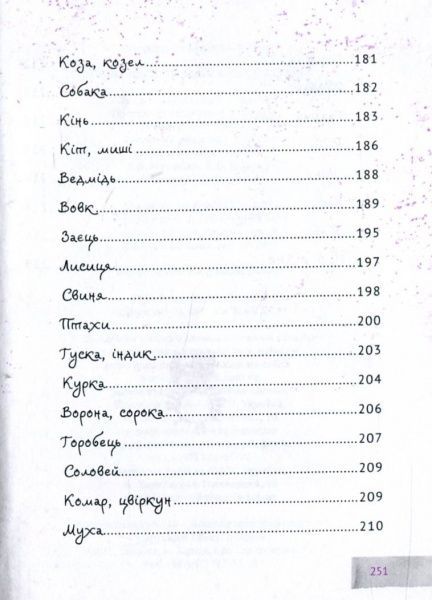 Коза, козел.....181
Собака.....182
Кінь.....183
Кіт, миші.....186
Ведмідь.....188
Вовк.....189
Заєць.....195
Лисиця.....197
Свиня.....198
Птахи.....200
Гуска, індик.....203
Курка.....204
Ворона, сорока.....206
Горобець.....207
Соловей.....209
Комар, цвіркун.....209
Муха.....210
251